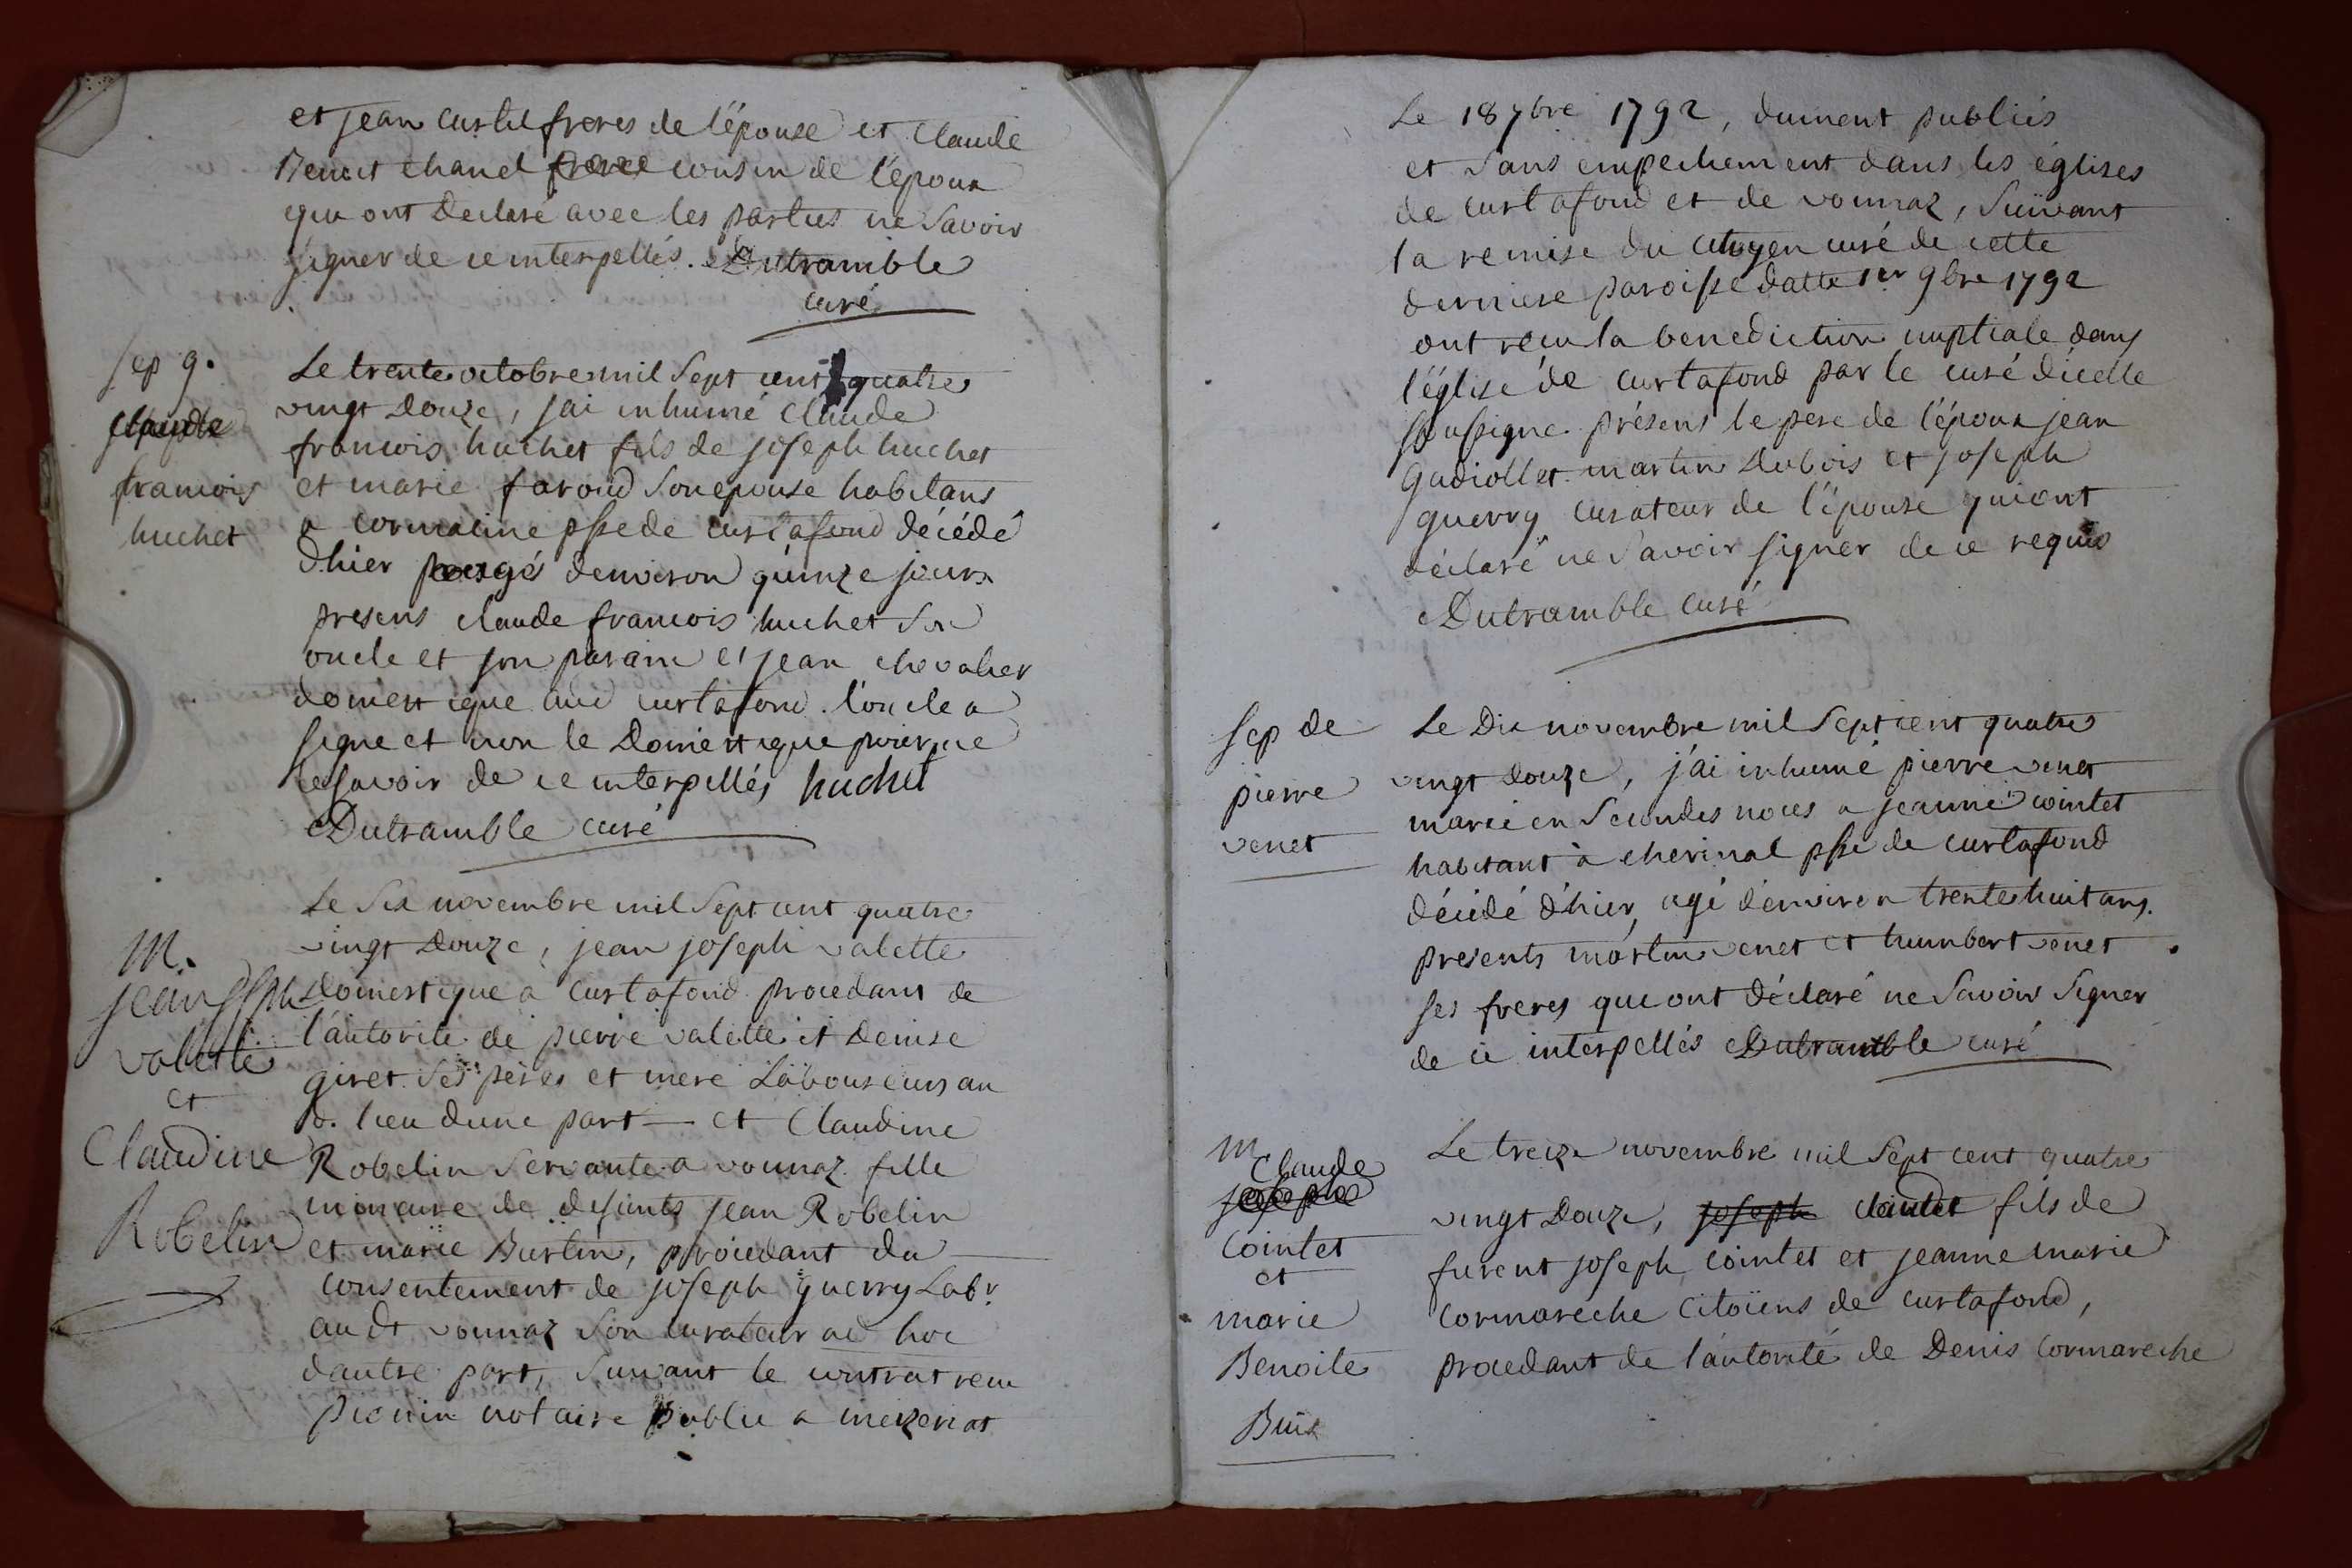 et jean curtil freres de l'épouse et Claude
Benoit chanel frere cousin de l'époux
qui ont declaré avec les parties ne savoir
signer de ce interpellés. Dutramble
curé
Sep 9.
Claude
francois
huchet
Le trente octobre mil sept cent quatre
vingt douze, jai inhumé claude
francois huchet fils de joseph huchet
et marie faroud son epouse habitans
a cormatine psse de curtafond décédé
d'hier agé denviron quinze jours
presens claude francois huchet son
oncle et son parain et jean chevalier
domestique aud curtafond. l'oncle a
signe et non le domestique pour ne
le savoir de ce interpellés huchet
Dutramble curé
M.
jean jsph
valette
et
Claudine
Robelin
Le six novembre mil sept cent quatre
vingt douze, jean joseph valette
domestique a curtafond procedant de
l'autorité de pierre valette et denise
giret ses pères et mere Laboureurs au
d. lieu dune part — et Claudine
Robelin servante a vonnaz fille
mineure de defunts jean Robelin
et marie Burtin, procedant du
consentement de joseph guerry Labr
audt vonnaz son curateur ad hoc
dautre part, suivant le contrat recu
picuin notaire public a mezeriat
Le 18 7bre 1792, dument publiés
et sans empechement dans les églises
de curtafond et de vonnaz, suivant
la remise du citoyen curé de cette
derniere paroisse datte 1er 9bre 1792
ont recu la benediction nuptiale dans
l'église de curtafond par le curé d'icelle
soussigne. présens le pere de l'époux jean
gadiollet martin Dubois et joseph
guerry curateur de l'épouse qui ont
déclaré ne savoir signer de ce requis
Dutramble curé
Sep de
pierre
venet
Le dix novembre mil sept cent quatre
vingt douze, j'ai inhumé pierre venet
marié en secondes noces a jeanne cointet
habitant à cherinal psse de curtafond
décédé d'hier, agé d'environ trente huit ans.
presents martin venet et humbert venet
ses freres qui ont déclaré ne savoir signer
de ce interpellés Dutramble curé
M
Claude
joseph
Cointet
et
marie
Benoite
Buis
Le treize novembre mil sept cent quatre
vingt douze, joseph claude fils de
furent joseph cointet et jeanne marie
cormareche citoïens de curtafond,
procedant de l'autorité de Denis cormareche